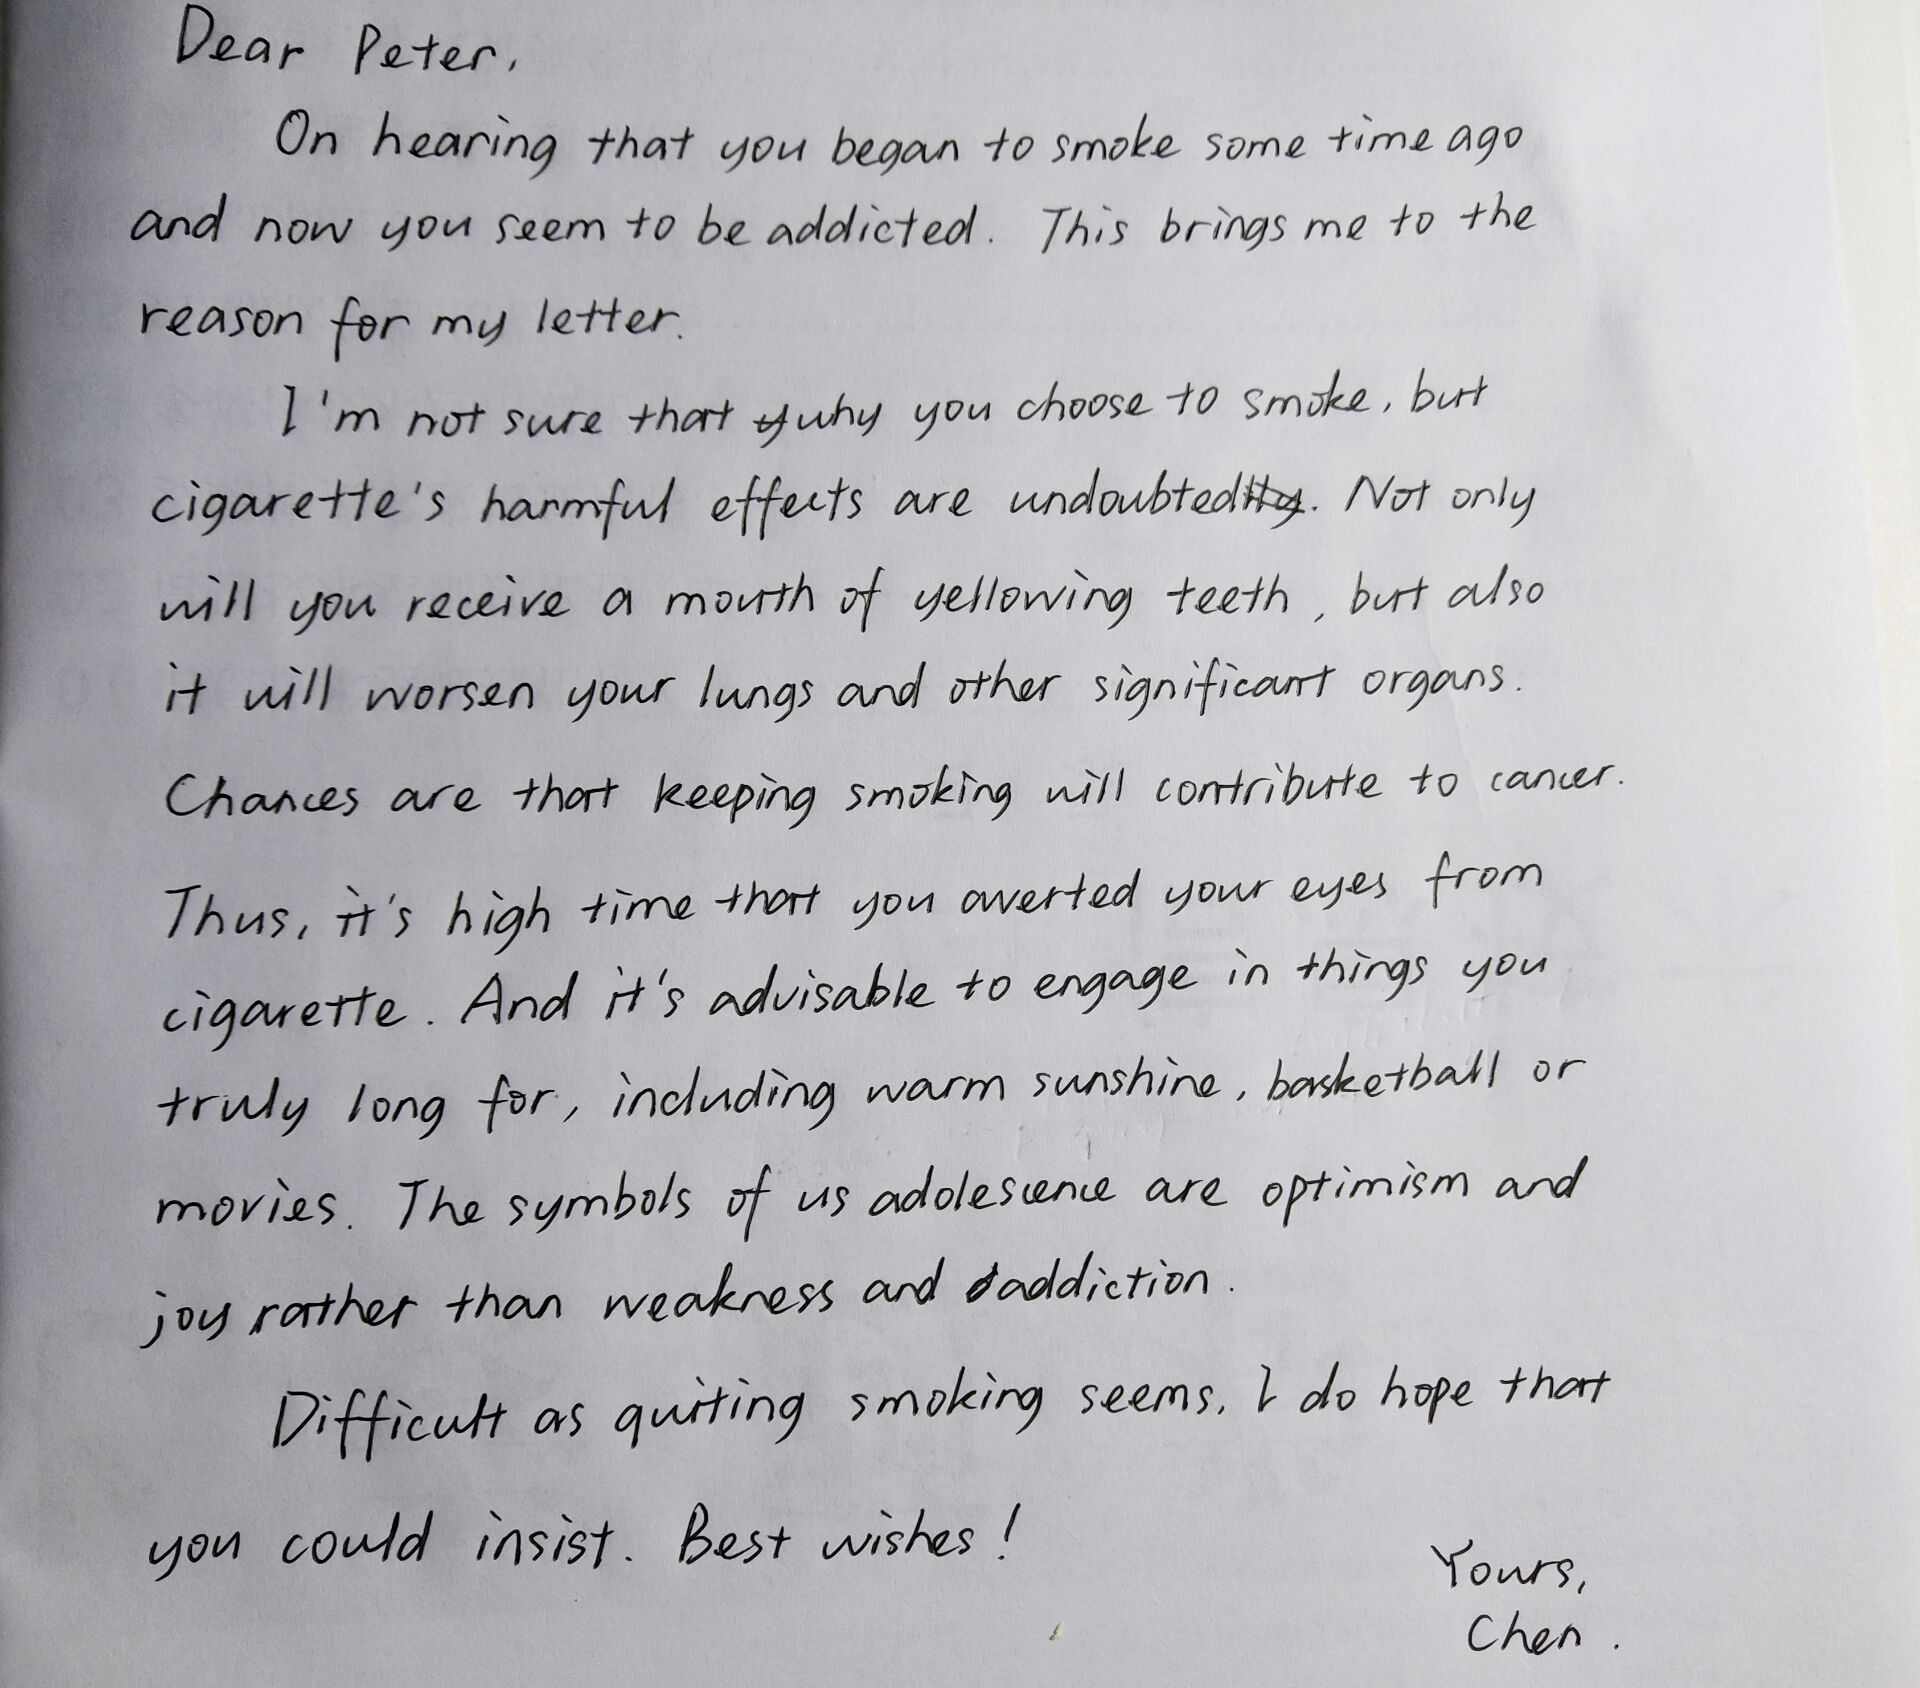 Dear Peter,
On hearing that you began to smoke some time ago
and now you seem to be addicted. This brings me to the
reason for my letter.
I'm not sure that why you choose to smoke, but
cigarette's harmful effects are undoubted. Not only
will you receive a mouth of yellowing teeth, but also
it will worsen your lungs and other significant organs.
Chances are that keeping smoking will contribute to cancer.
Thus, it's high time that you averted your eyes from
cigarette. And it's advisable to engage in things you
truly long for, including warm sunshine, basketball or
movies. The symbols of us adolescence are optimism and
joy rather than weakness and addiction.
Difficult as quiting smoking seems, I do hope that
you could insist. Best wishes!
Yours,
Chen.